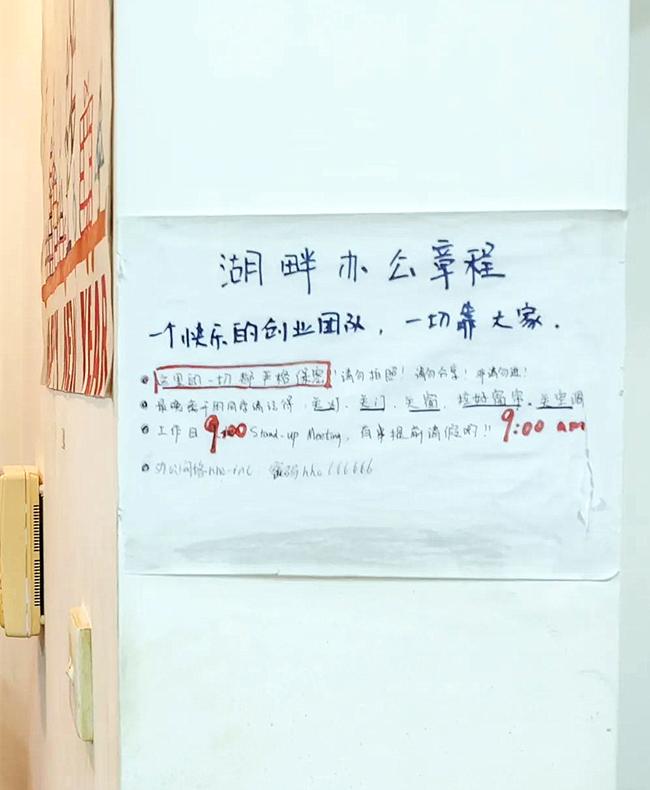 湖畔办公章程
一个快乐的创业团队，一切靠大家.
这里的一切都严格保密！请勿拍照！请勿分享！非请勿进！
最晚离开的同学请记得，关灯、关门、关窗、拉好窗帘、关空调
工作日9:00 Stand-up Meeting，有事提前请假哟!! 9:00 am
办公网络nhc-inc 密码nhc666666
YEAR